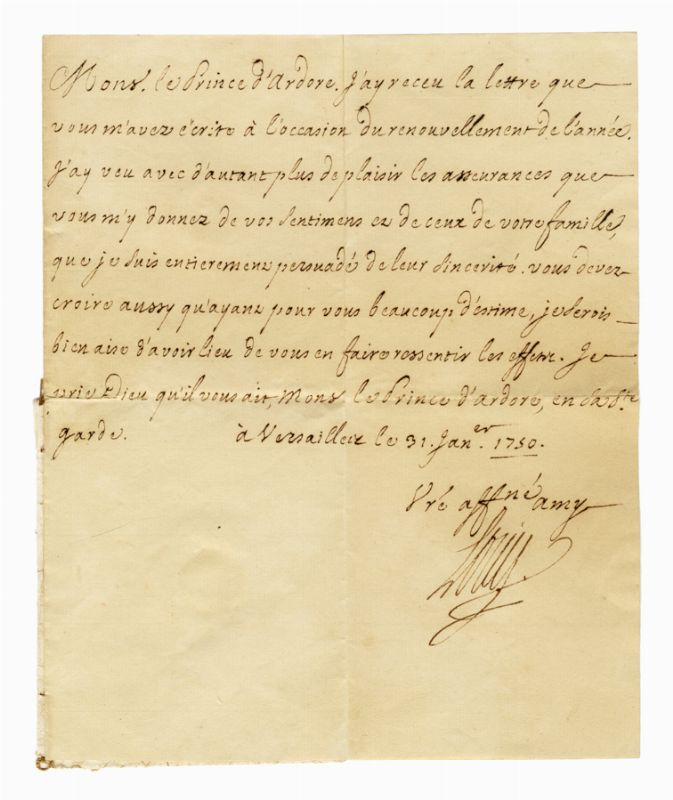 Mons. le Prince d'Ardore. J'ay receu la lettre que
vous m'avez écrite à l'occasion du renouvellement de l'année.
J'ay veu avec d'autant plus de plaisir les assurances que
vous m'y donnez de vos sentimens et de ceux de votre famille,
que je suis entierement persuadé de leur sincerité. vous devez
croire aussy qu'ayant pour vous beaucoup d'estime, je serois
bien aise d'avoir lieu de vous en faire ressentir les effets. Je
prie Dieu qu'il vous ait, Mons. le Prince d'Ardore, en sa Ste
garde. à Versailles le 31. Janer 1750.
Vré affné amy
Louis